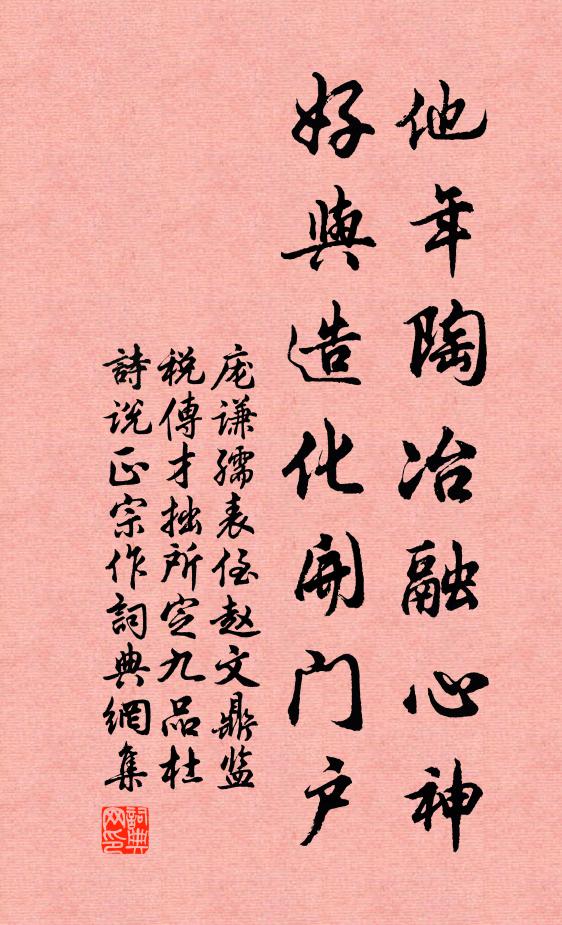 他年陶冶融心神
好與造化開门户
庞谦孺表侄赵文鼎监
税傳才拙所定九品杜
詩说正宗作詞典網集
詞典
网印